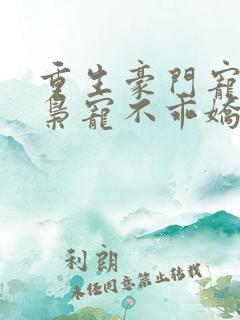 重生豪門寵
梟寵不乖嬌
利朗
未经同意禁止转载